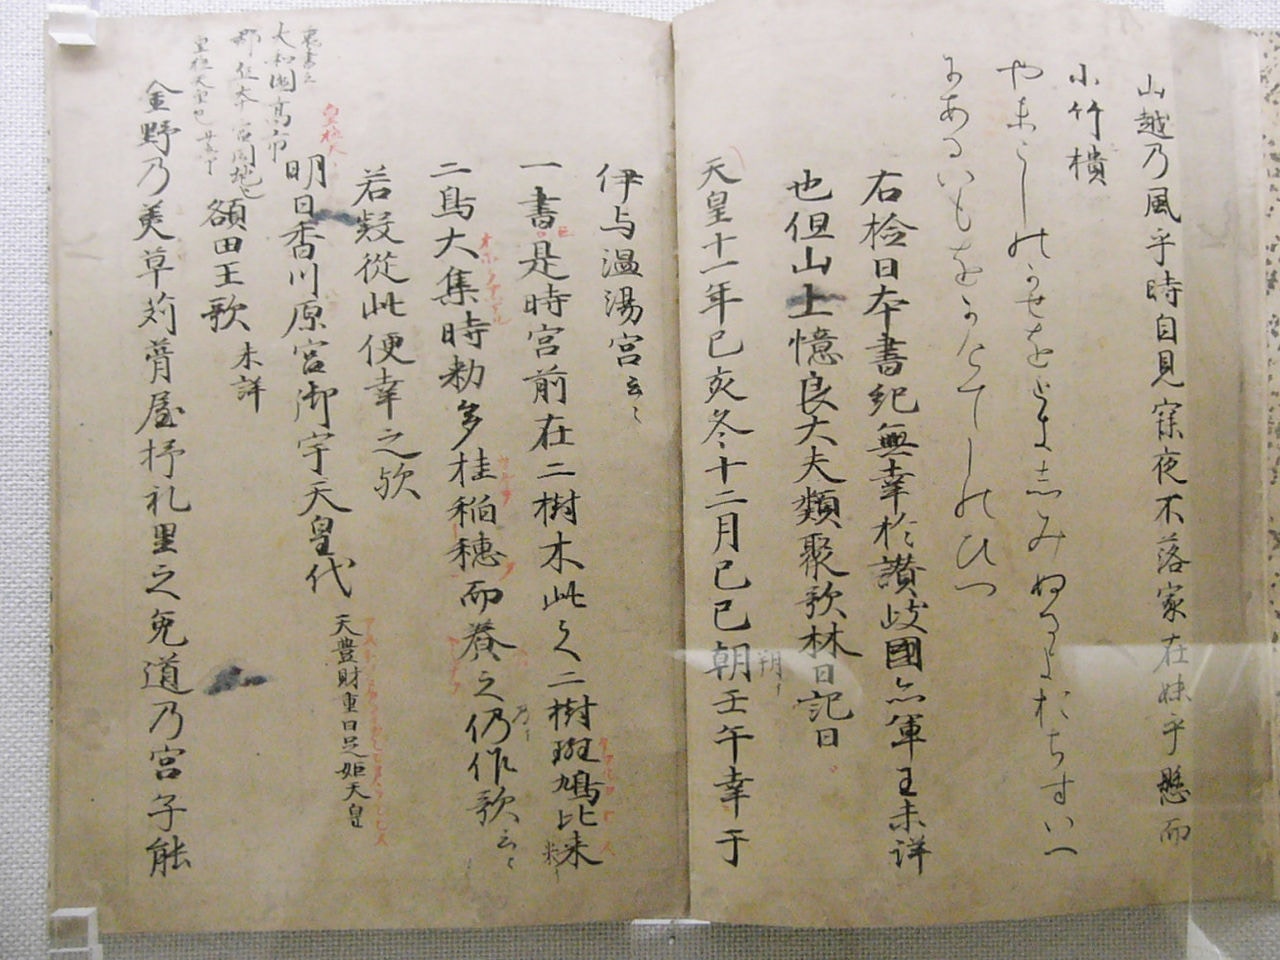 山越乃風乎時自見寐夜不落家在妹乎懸而
小竹樻
やまこしのかせをときしみぬるよおちすいへ
にあるいもをかけてしのひつ
右檢日本書紀無幸於讃岐國亦軍王未詳
也但山上憶良大夫類聚歌林曰記曰
天皇十一年己亥冬十二月己巳朝壬午幸于
朔
伊与温湯宮云〻
一書是時宮前在二樹木此之二樹斑鳩比来
米
二鳥大集時勅多桂稲穂而養之仍作歌云〻
乃
若疑從此便幸之歟
明日香川原宮御宇天皇代 天豊財重日足姫天皇
皇極天
裏書云
大和國高市
額田王歌 未詳
金野乃美草苅葺屋杼礼里之兎道乃宮子能